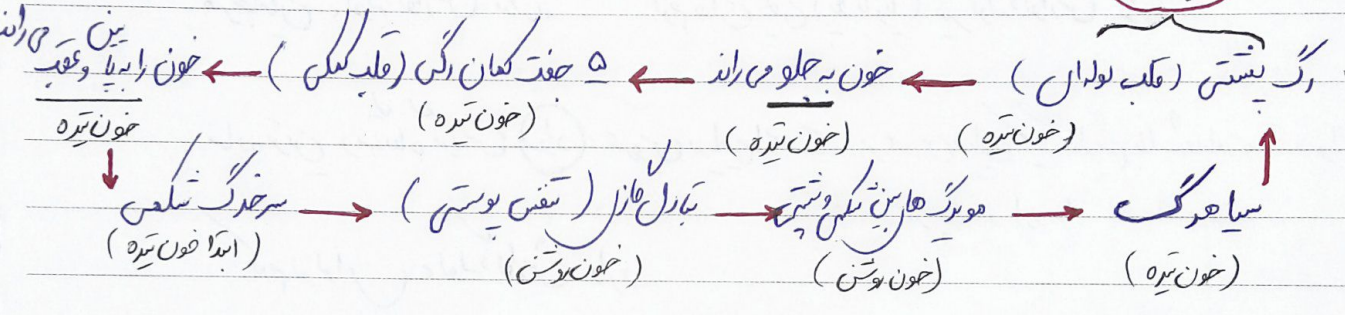 رگ پشتی (قلب لوله‌ای) ← خون به جلو می راند ← ۵ جفت کمان رگی (قلب کمکی) ← خون را به پایین و عقب می راند
(خون تیره) (خون تیره) (خون تیره) خون تیره
سرخرگ شکمی → تبادل گازی (تنفس پوستی) → مویرگ های بین شکمی و پشتی → سیاهرگ
(ابتدا خون تیره) (خون روشن) (خون روشن) (خون تیره)